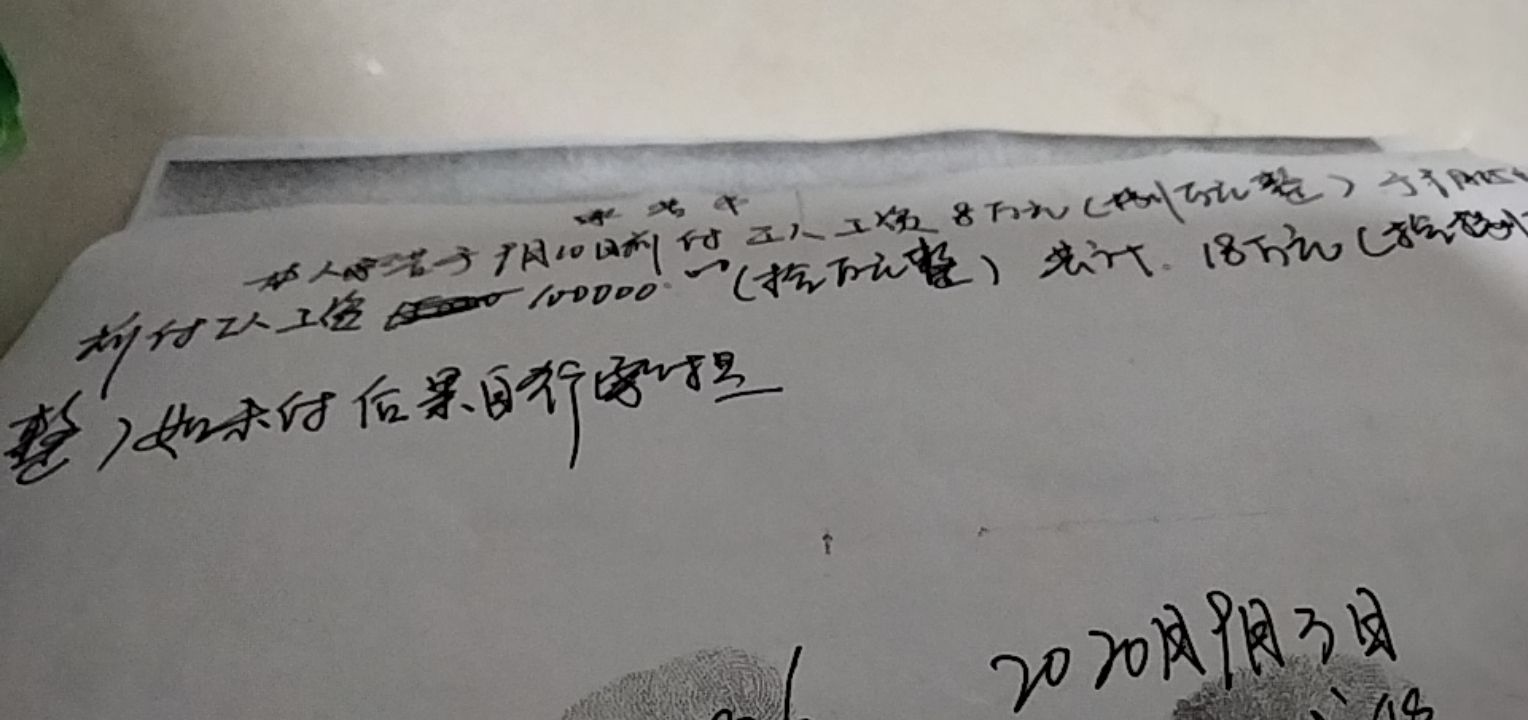 承诺书
本人承诺于9月10日前付工人工资8万元(捌万元整)于9月25
前付工人工资 100000.-(拾万元整)共计.18万元(拾捌
整)如未付后果自行承担
2020月9月3日